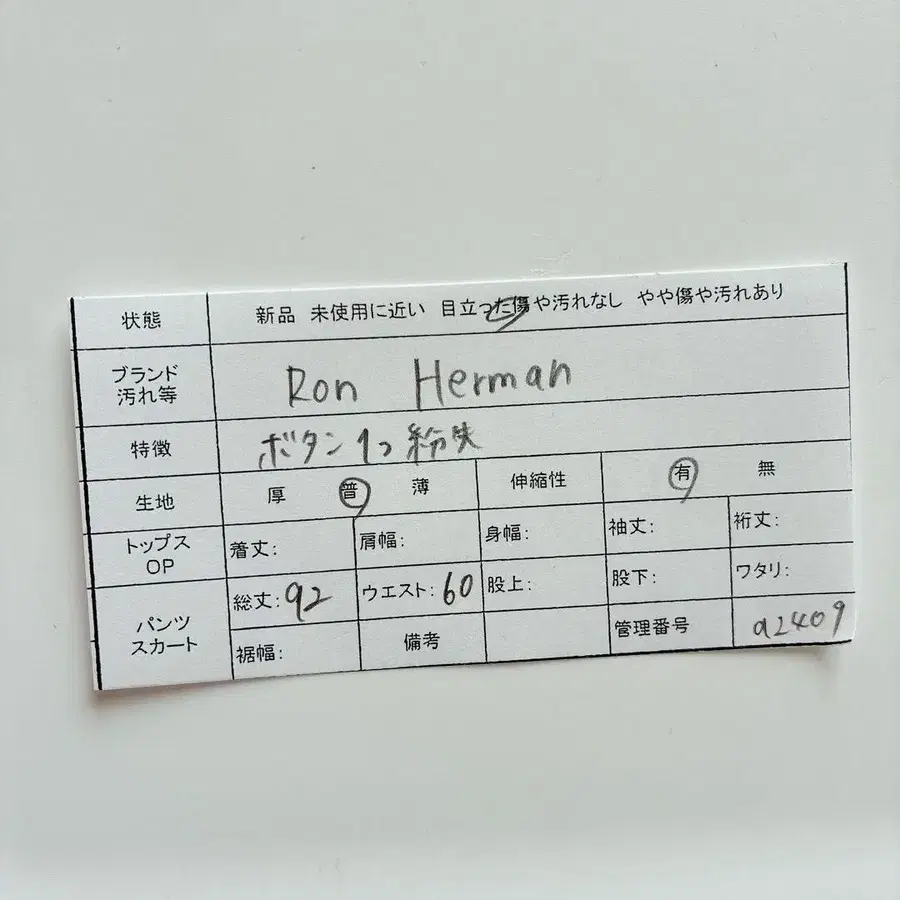 状態 新品 未使用に近い 目立った傷や汚れなし やや傷や汚れあり
ブランド
汚れ等 Ron Herman
特徴 ボタン1つ紛失
生地 厚 普 薄 伸縮性 有 無
トップス
OP 着丈: 肩幅: 身幅: 袖丈: 裄丈:
パンツ
スカート 総丈:92 ウエスト:60 股上: 股下: ワタリ:
裾幅: 備考 管理番号 a2409